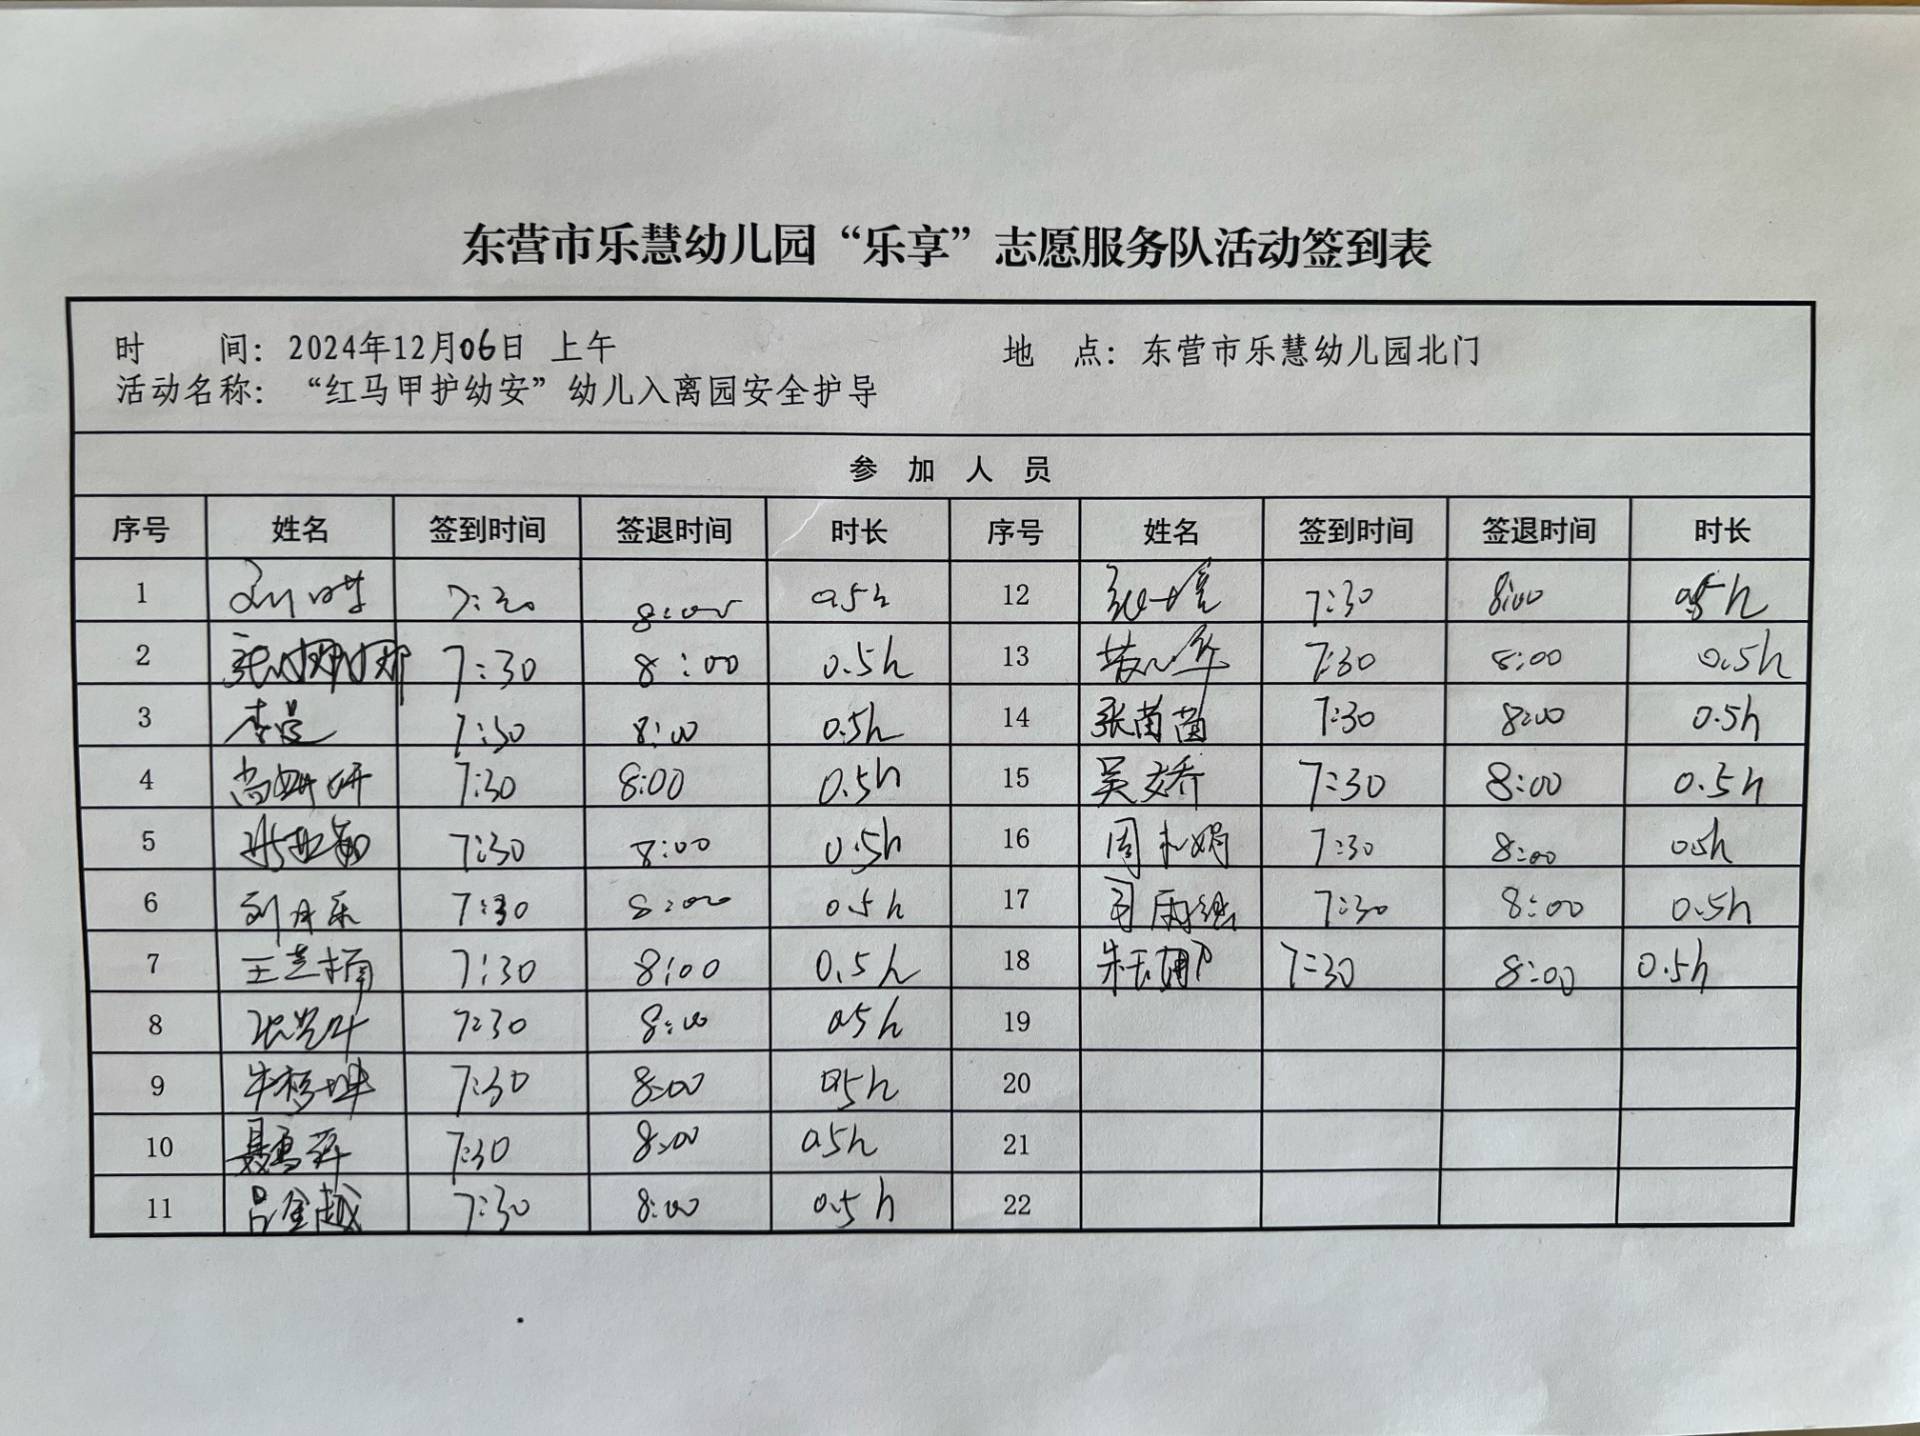 东营市乐慧幼儿园“乐享”志愿服务队活动签到表
时 间：2024年12月06日 上午 地 点：东营市乐慧幼儿园北门
活动名称：“红马甲护幼安”幼儿入离园安全护导
参 加 人 员
序号 姓名 签到时间 签退时间 时长 序号 姓名 签到时间 签退时间 时长
1 7:30 8:00 0.5h 12 7:30 8:00 0.5h
2 张娜娜 7:30 8:00 0.5h 13 7:30 8:00 0.5h
3 7:30 8:00 0.5h 14 张茵茵 7:30 8:00 0.5h
4 尚妍妍 7:30 8:00 0.5h 15 吴文乔 7:30 8:00 0.5h
5 7:30 8:00 0.5h 16 7:30 8:00 0.5h
6 刘丹乐 7:30 8:00 0.5h 17 7:30 8:00 0.5h
7 王芝楠 7:30 8:00 0.5h 18 7:30 8:00 0.5h
8 7:30 8:00 0.5h 19
9 7:30 8:00 0.5h 20
10 7:30 8:00 0.5h 21
11 吕金越 7:30 8:00 0.5h 22